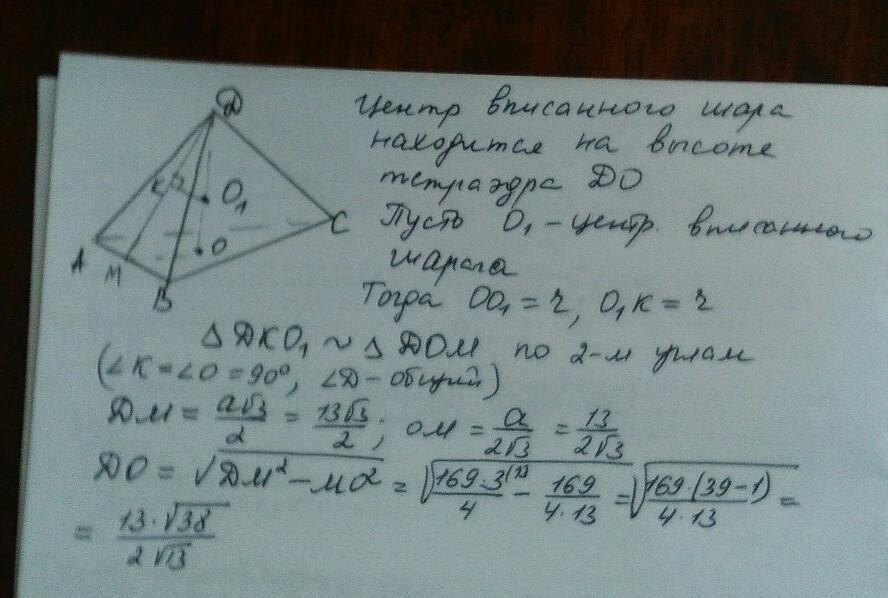 Центр вписанного шара
находится на высоте
тетраэдра DO
Пусть O₁ - центр вписанного
шара
Тогда OO₁ = r, O₁K = r
D
K
O₁
O
C
A
M
B
△ DKO₁ ~ △ DOM по 2-м углам
(∠K = ∠O = 90°, ∠D - общий)
DM = a√3/2 = 13√3/2; OM = a/2√3 = 13/2√3
DO = √(DM² - MO²) = √(169·3/4 - 169/4·13) = √(169·(39-1)/4·13) =
= 13·√38/2√13